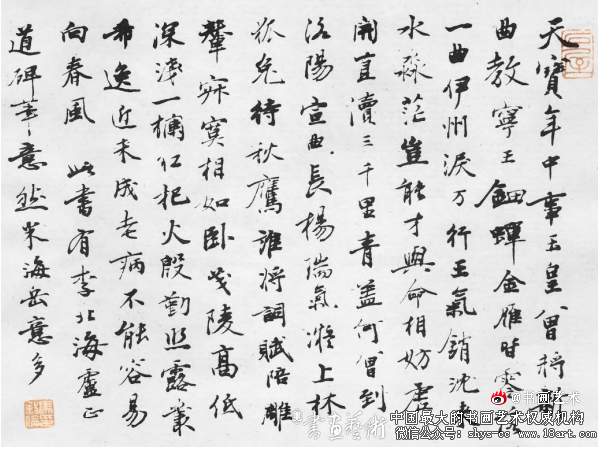 天寶年中事玉皇曾將新
曲教寧王鈿蟬金雁皆零落
一曲伊州淚万行王氣銷沈来
水淼茫豈能才與命相妨虛
開直瀆三千里青蓋何曾到
洛陽宣曲長楊瑞氣凝上林
狐兔待秋鷹誰將詞賦陪雕
輦寂寞相如卧茂陵高低
深淺一欄红把火殷勤照露叢
希逸近来成老病不能容易
向春風 此書有李北海盧正
道碑筆意然米海岳意多
@书画艺术
書画藝術
中国最大的书画艺术权威机构
微信公众号: shys-cc www.18art.com